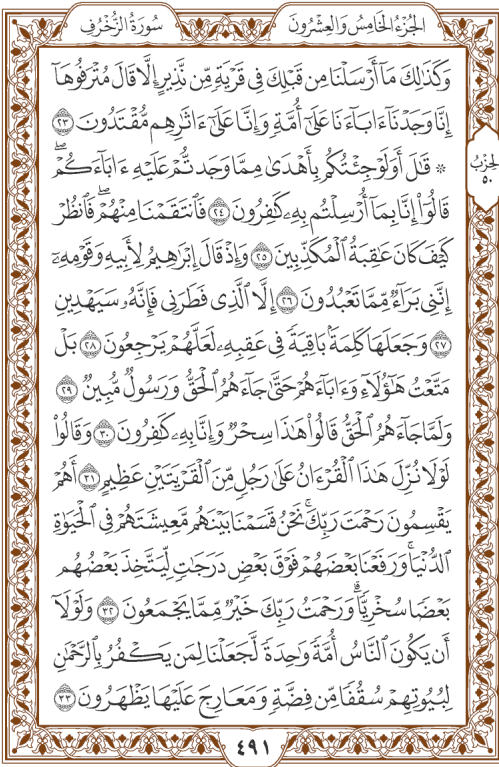 سُورَةُ الزُّخْرُفِ
الجُزْءُ الخَامِسُ وَالعِشْرُونَ
وَكَذَٰلِكَ مَآ أَرْسَلْنَا مِن قَبْلِكَ فِى قَرْيَةٍ مِّن نَّذِيرٍ إِلَّا قَالَ مُتْرَفُوهَآ
إِنَّا وَجَدْنَآ ءَابَآءَنَا عَلَىٰٓ أُمَّةٍ وَإِنَّا عَلَىٰٓ ءَاثَٰرِهِم مُّقْتَدُونَ ٢٣
۞ قَٰلَ أَوَلَوْ جِئْتُكُم بِأَهْدَىٰ مِمَّا وَجَدتُّمْ عَلَيْهِ ءَابَآءَكُمْۖ
قَالُوٓا۟ إِنَّا بِمَآ أُرْسِلْتُم بِهِۦ كَٰفِرُونَ ٢٤ فَٱنتَقَمْنَا مِنْهُمْۖ فَٱنظُرْ
كَيْفَ كَانَ عَٰقِبَةُ ٱلْمُكَذِّبِينَ ٢٥ وَإِذْ قَالَ إِبْرَٰهِيمُ لِأَبِيهِ وَقَوْمِهِۦٓ
إِنَّنِى بَرَآءٌ مِّمَّا تَعْبُدُونَ ٢٦ إِلَّا ٱلَّذِى فَطَرَنِى فَإِنَّهُۥ سَيَهْدِينِ
٢٧ وَجَعَلَهَا كَلِمَةًۢ بَاقِيَةً فِى عَقِبِهِۦ لَعَلَّهُمْ يَرْجِعُونَ ٢٨ بَلْ
مَتَّعْتُ هَٰٓؤُلَآءِ وَءَابَآءَهُمْ حَتَّىٰ جَآءَهُمُ ٱلْحَقُّ وَرَسُولٌ مُّبِينٌ ٢٩
وَلَمَّا جَآءَهُمُ ٱلْحَقُّ قَالُوا۟ هَٰذَا سِحْرٌ وَإِنَّا بِهِۦ كَٰفِرُونَ ٣٠ وَقَالُوا۟
لَوْلَا نُزِّلَ هَٰذَا ٱلْقُرْءَانُ عَلَىٰ رَجُلٍ مِّنَ ٱلْقَرْيَتَيْنِ عَظِيمٍ ٣١ أَهُمْ
يَقْسِمُونَ رَحْمَتَ رَبِّكَۚ نَحْنُ قَسَمْنَا بَيْنَهُم مَّعِيشَتَهُمْ فِى ٱلْحَيَوٰةِ
ٱلدُّنْيَاۚ وَرَفَعْنَا بَعْضَهُمْ فَوْقَ بَعْضٍ دَرَجَٰتٍ لِّيَتَّخِذَ بَعْضُهُم
بَعْضًا سُخْرِيًّاۗ وَرَحْمَتُ رَبِّكَ خَيْرٌ مِّمَّا يَجْمَعُونَ ٣٢ وَلَوْلَآ
أَن يَكُونَ ٱلنَّاسُ أُمَّةً وَٰحِدَةً لَّجَعَلْنَا لِمَن يَكْفُرُ بِٱلرَّحْمَٰنِ
لِبُيُوتِهِمْ سُقُفًا مِّن فِضَّةٍ وَمَعَارِجَ عَلَيْهَا يَظْهَرُونَ ٣٣
الحِزْبُ
٥٠
٤٩١